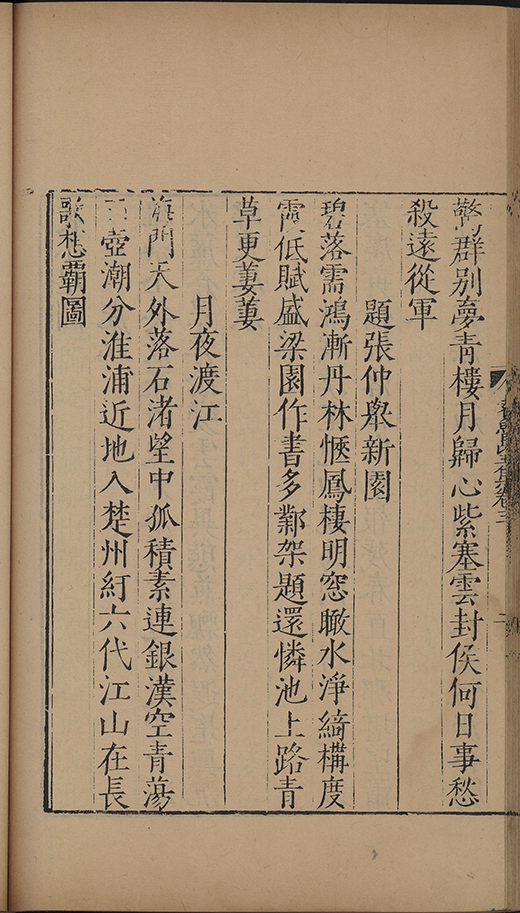 驚群別夢青樓月歸心紫塞雲封侯何日事愁
殺遠從軍
題張仲舉新園
碧落需鴻漸丹林愜鳳棲明窓瞰水淨綺構度
霞低賦盛梁園作書多鄴架題還憐池上路青
草更萋萋
月夜渡江
海門天外落石渚望中孤積素連銀漢空青蕩
玉壺潮分淮浦近地入楚州紆六代江山在長
歌想霸圖